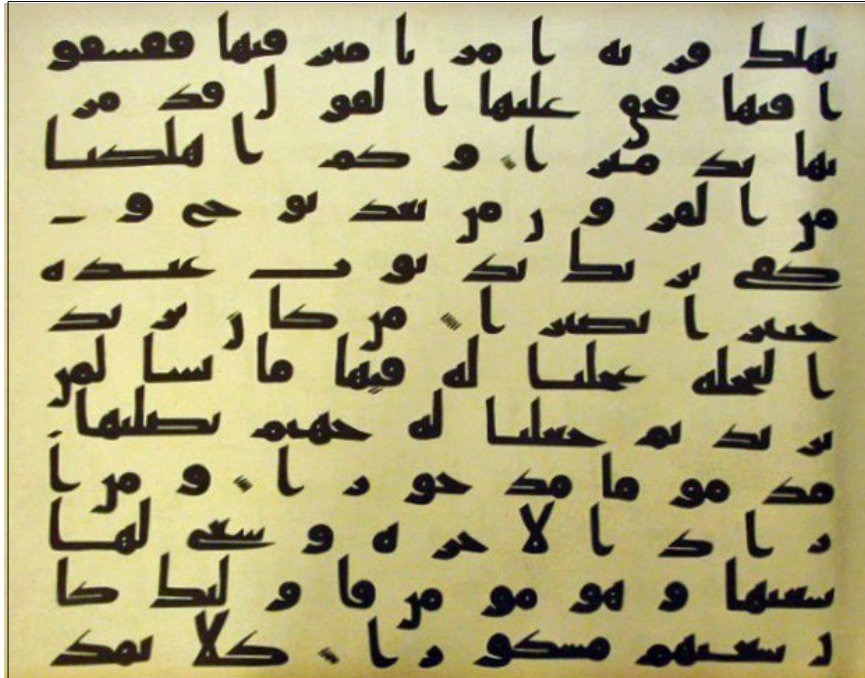 نهلك قرية امرنا مترفيها ففسقو
ا فيها فحق عليها القول فدمر
نها تدميرا وكم اهلكنا
من القرون من بعد نوح و
كفى بربك بذنوب عبده
خبيرا بصيرا من كان يريد
العجلة عجلنا له فيها ما نشا لمن
نريد ثم جعلنا له جهنم يصليها
مذموما مدحورا ومن ا
راد الاخرة وسعى لها
سعيها وهو مومن فاوليك كا
ن سعيهم مشكورا كلا نمد